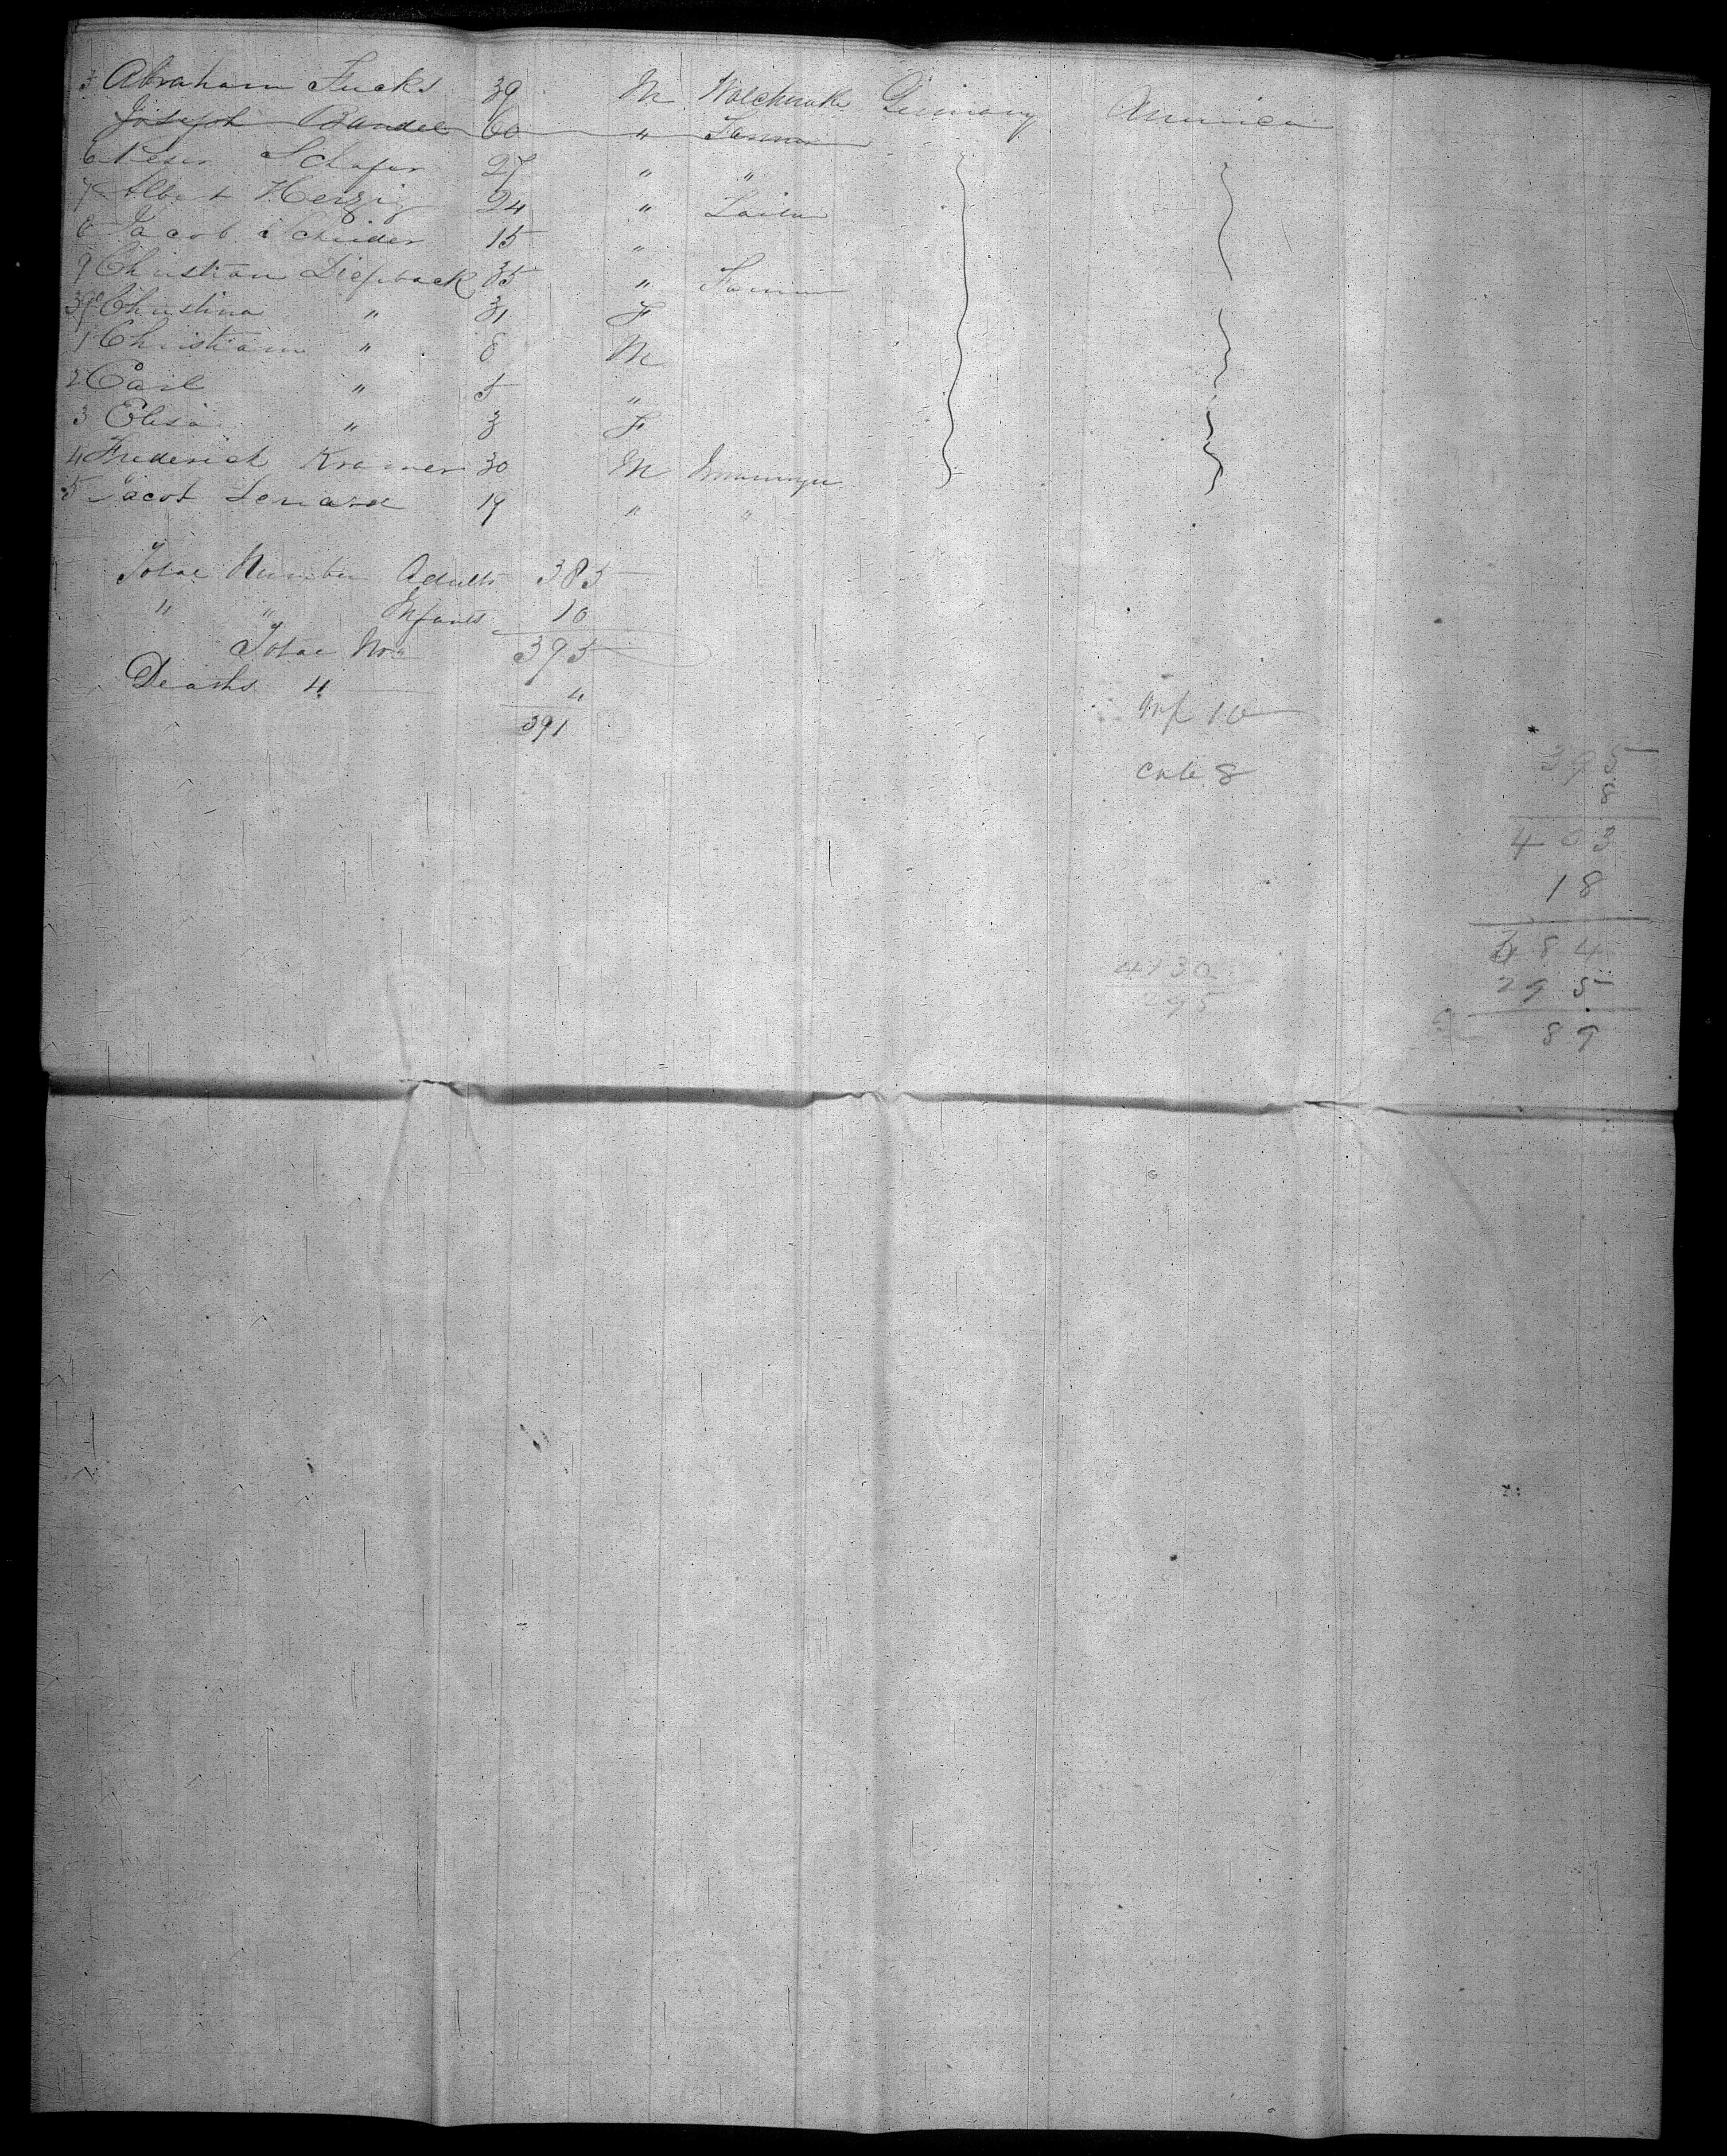 Abraham Fucks 39 M Germany America
Joseph Bandel 60 " Farmer
6 Peter Schafer 27 " "
7 Albert Herzig 24 " Tailor
8 Jacob Schuider 15 "
9 Christian Diefuback 35 " Farmer
390 Christina " 31 F
1 Christian " 8 M
2 Carl " 5 "
3 Elisa " 3 F
4 Frederick Kramer 30 M
5 Jacob Lenard 19 " "
Total Number Adults 385
" " Infants 10
Total No. 395
Deaths 4 4
391
Inf 10
8
395
8
403
18
384
295
89
4130
295